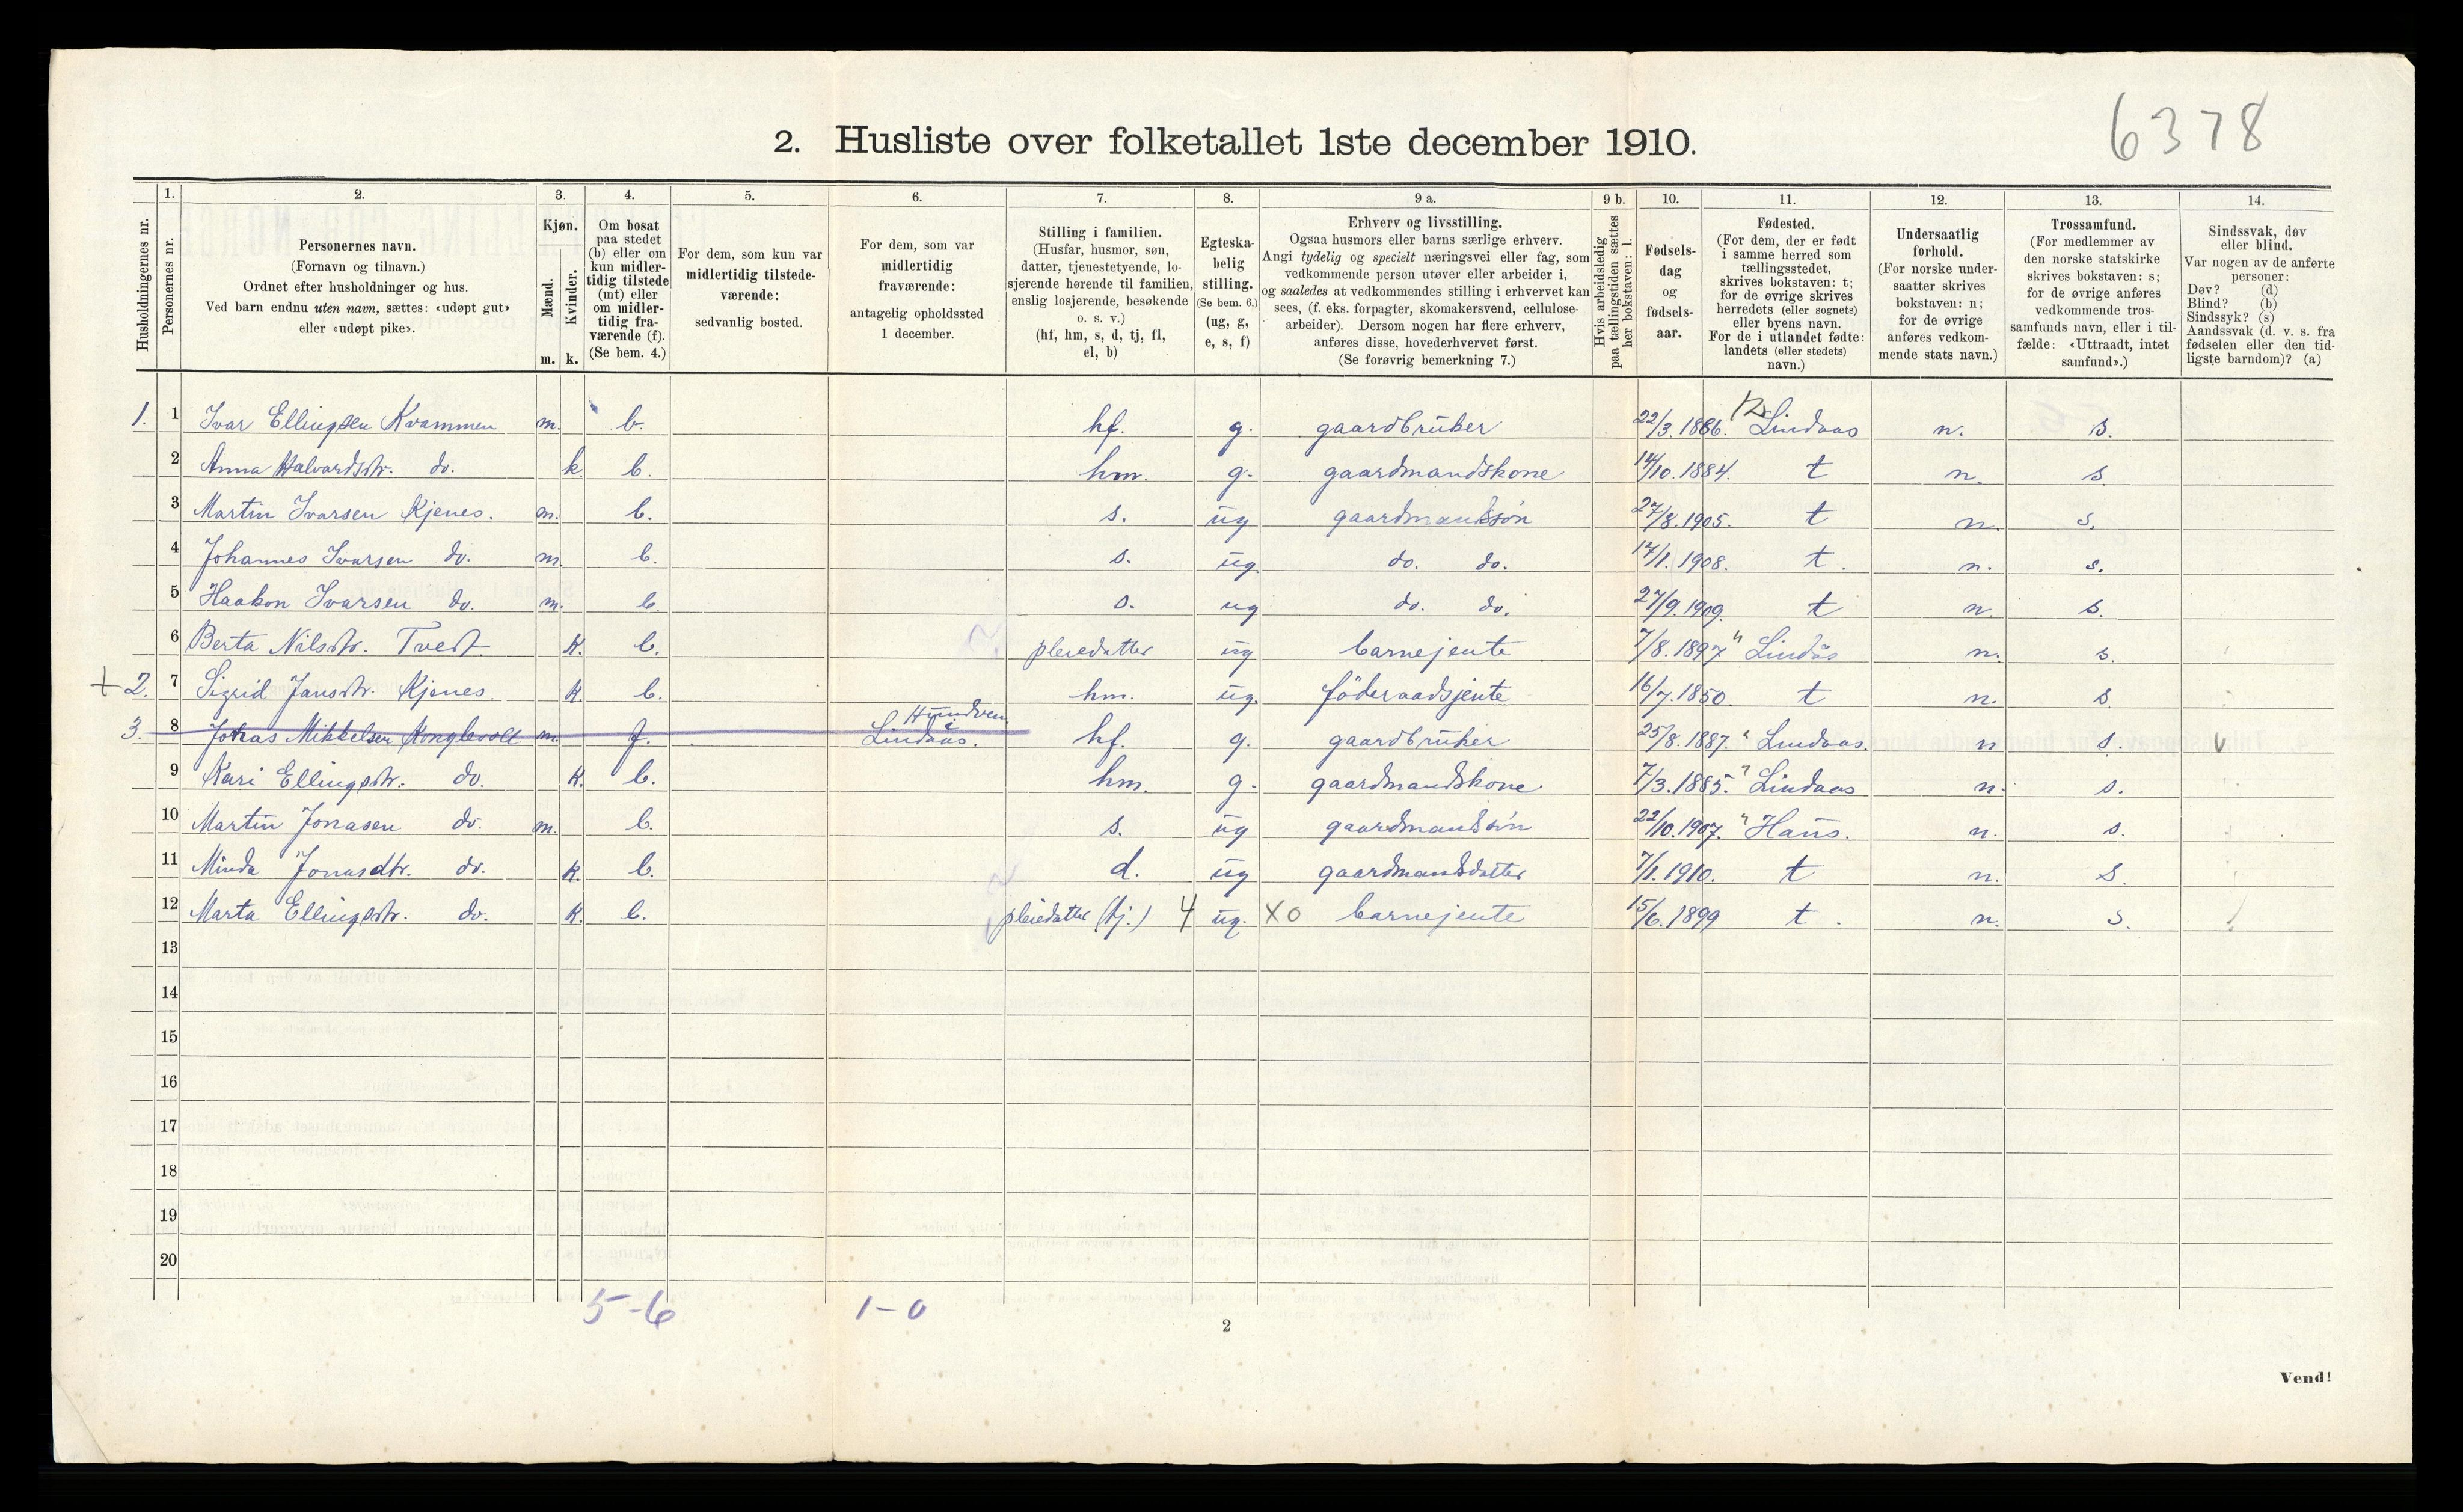 6378
2. Husliste over folketallet 1ste december 1910.
Husholdningernes nr.
1.
Personernes nr.
2.
Personernes navn.
(Fornavn og tilnavn.)
Ordnet efter husholdninger og hus.
Ved barn endnu uten navn, sættes: «udøpt gut»
eller «udøpt pike».
3.
Kjøn.
Mænd.
m.
Kvinder.
k.
4.
Om bosat
paa stedet
(b) eller om
kun midler-
tidig tilstede
(mt) eller
om midler-
tidig fra-
værende (f).
(Se bem. 4.)
5.
For dem, som kun var
midlertidig tilstede-
værende:
sedvanlig bosted.
6.
For dem, som var
midlertidig
fraværende:
antagelig opholdssted
1 december.
7.
Stilling i familien.
(Husfar, husmor, søn,
datter, tjenestetyende, lo-
sjerende hørende til familien,
enslig losjerende, besøkende
o. s. v.)
(hf, hm, s, d, tj, fl,
el, b)
8.
Egteska-
belig
stilling.
(Se bem. 6.)
(ug, g,
e, s, f)
9 a.
Erhverv og livsstilling.
Ogsaa husmors eller barns særlige erhverv.
Angi tydelig og specielt næringsvei eller fag, som
vedkommende person utøver eller arbeider i,
og saaledes at vedkommendes stilling i erhvervet kan
sees, (f. eks. forpagter, skomakersvend, cellulose-
arbeider). Dersom nogen har flere erhverv,
anføres disse, hovederhvervet først.
(Se forøvrig bemerkning 7.)
9 b.
Hvis arbeidsledig
paa tællingstiden sættes
her bokstaven: l.
10.
Fødsels-
dag
og
fødsels-
aar.
11.
Fødested.
(For dem, der er født
i samme herred som
tællingsstedet,
skrives bokstaven: t;
for de øvrige skrives
herredets (eller sognets)
eller byens navn.
For de i utlandet fødte:
landets (eller stedets)
navn.)
12.
Undersaatlig
forhold.
(For norske under-
saatter skrives
bokstaven: n;
for de øvrige
anføres vedkom-
mende stats navn.)
13.
Trossamfund.
(For medlemmer av
den norske statskirke
skrives bokstaven: s;
for de øvrige anføres
vedkommende tros-
samfunds navn, eller i til-
fælde: «Uttraadt, intet
samfund».)
14.
Sindssvak, døv
eller blind.
Var nogen av de anførte
personer:
Døv? (d)
Blind? (b)
Sindssyk? (s)
Aandssvak (d. v. s. fra
fødselen eller den tid-
ligste barndom)? (a)
1. 1 Ivar Ellingsen Kvammen m. b. hf. g. gaardbruker 22/3. 1886. Lindaas n. s.
2 Anna Halvardsdtr. do. k b. hm. g. gaardmandskone 14/10. 1884. t n. s.
3 Martin Ivarsen Kjenes. m. b. s. ug gaardmandssøn 27/8. 1905. t n. s.
4 Johannes Ivarsen do. m. b. s. ug. do. do. 17/1. 1908. t. n. s.
5 Haakon Ivarsen do. m. b. s. ug do. do. 27/9. 1909. t n. s.
6 Berta Nilsdtr. Tveit k. b. pleiedatter ug barnejente 7/8. 1897 " Lindås n. s.
+ 2. 7 Sigrid Jansdtr. Kjenes. k. b. hm. ug. föderaadsjente 16/7. 1850. t n. s.
3. 8 Johas Mikkelsen Konglevoll m. f. Hundven i
Lindaas. hf. g. gaardbruker 25/8. 1887. " Lindaas. n s. v
9 Kari Ellingsdtr. do. k. b. hm. g. gaardmandskone 7/3. 1885. " Lindaas n. s.
10 Martin Jonasen do. m. b. s. ug gaardmandssøn 22/10. 1907. " Haus. n. s.
11 Minda Jonasdtr. do. k. b. d. ug gaardmandsdatter 7/1. 1910. t n. s.
12 Marta Ellingsdtr. do. k. b. pleiedatter (tj.) 4 ug. X0 barnejente 15/6. 1899 t. n. s.
13
14
15
16
17
18
19
20
5-6 1-0
2
Vend!